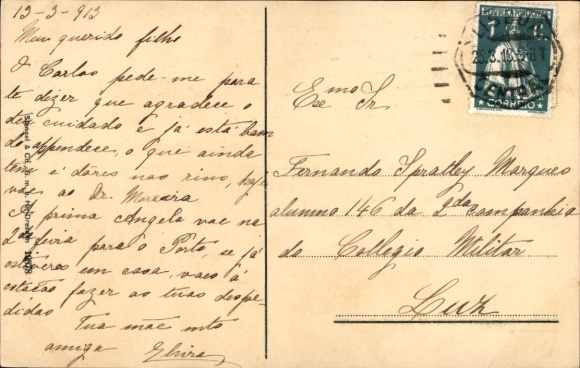 13-3-913
Meu querido filho
O Carlos pede-me para
te dizer que agradece o
teu cuidado e já está bom
do appendece, o que ainda
tem é dores nao rins, hoje
vae ao Dr. Moreira
A prima Angela vae na
2ª feira para o Porto, se já
estiveres em casa, vaes á
estação fazer as tuas despe
didas
Tua mãe mto
amiga Elvira
Exmo Sr
Fernando Spratley Marques
alumno 146 da 2da companhia
do Collegio Militar
Luz
CORREIO
CENTRAL
Stengel & Co